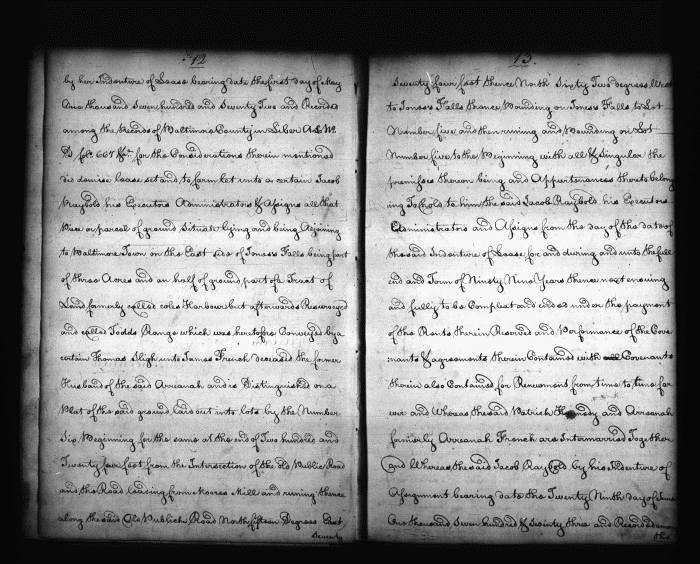 12
by her Indenture of Lease bearing date the first day of May
One thousand Seven hundred and Seventy Two and Recorded
among the Records of Baltimore County in Liber A L No
D folo 667 &c for the Considerations therein mentioned
did demise lease set and to farm let unto a certain Jacob
Raybold his Executors Administrators & Assigns all that
Piece or parcel of ground Situate lying and being Adjoining
to Baltimore Town on the East side of Jones's Falls being part
of three Acres and an half of ground part of a Tract of
Land formerly called coles Harbour but afterwards Resurveyed
and called Todds Range which was heretofore Conveyed by a
certain Thomas Sligh unto James French deceased the former
Husband of the said Arreanah and is Distinguished on a
Plat of the said ground laid out into lots by the Number
Six Beginning for the same at the end of Two hundred and
Twenty four feet from the Intersection of the old Public Road
and the Road leading from Moores Mill and runing thence
along the said Old Publick Road North fifteen Degrees East
Seventy
13.
Seventy four feet thence North Sixty Two degrees West
to Jones's Falls thence Bounding on Jones's Falls to Lot
Number five and then runing and Bounding on Lot
Number five to the Beginning with all & Singular the
premisses thereon being and Appurtenances thereto belong
ing To hold to him the said Jacob Raybold his Executors
Administrators and Assigns from the day of the date of
the said Indenture of Lease for and during and unto the full
end and Term of Ninety Nine Years thence next ensuing
and fully to be Compleat and ended under the payment
of the Rents therein Reserved and Performance of the Cove
nants & agreements therein Contained with Covenants
therein also Contained for Renewment from time to time for
ever and Whereas the said Patrick Kennedy and Arreanah
formerly Arreanah French are Intermarried Together
and Whereas the said Jacob Raybold by his Indenture of
Assignment bearing date the Twenty Ninth day of June
One thousand Seven hundred & Seventy three and Recorded among
the